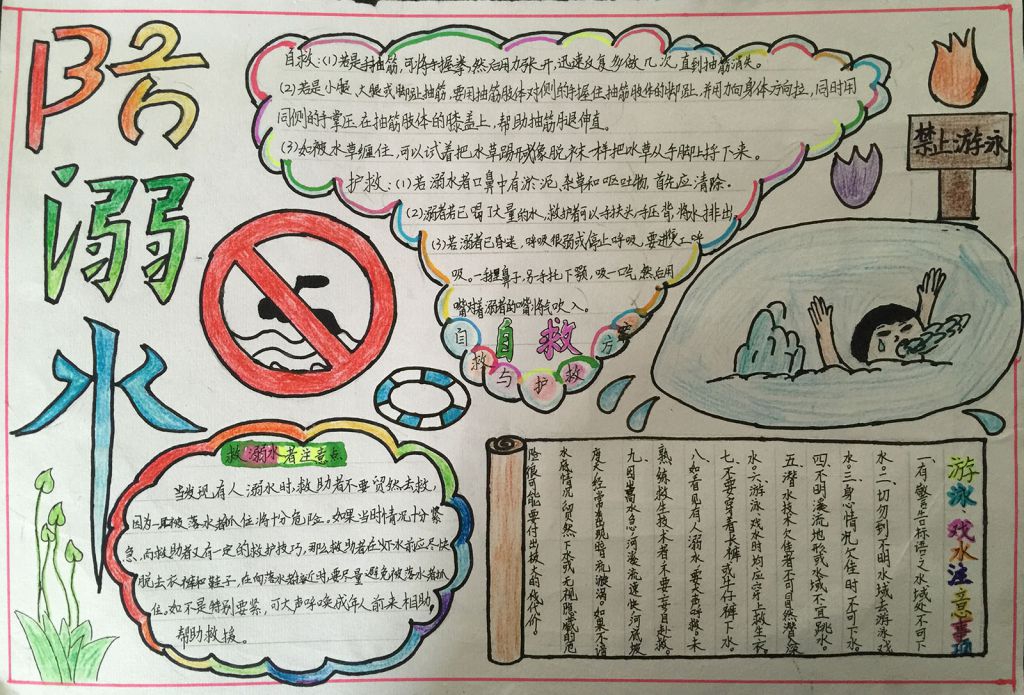 陷溺水
自救:(1)若是手抽筋,可将手握拳,然后用力张开,迅速反复多做几次,直到抽筋消失。
(2)若是小腿、大腿或脚趾抽筋,要用抽筋肢体对侧的手握住抽筋肢体的脚趾,并用力向身体方向拉,同时用
同侧的手掌压在抽筋肢体的膝盖上,帮助抽筋腿伸直。
(3)如被水草缠住,可以试着把水草踢或像脱袜一样把水草从手脚上捋下来。
护救:(1)若溺水者口鼻中有淤泥、杂草和呕吐物,首先应清除。
(2)溺者若已喝了大量的水,救护者可以手扶头手压背,将水排出
(3)若溺者已昏迷,呼吸很弱或停止呼吸,要进行人工呼
吸。一手捏鼻子,另手托下颚,吸一口气,然后用
嘴对着溺者的嘴将气吹入。
自救
自救与护救方
禁止游泳
救溺水者注意点
当发现有人溺水时,救助者不要贸然去救,
因为一旦被落水者抓住将十分危险。如果当时情况十分紧
急,而救助者又有一定的救护技巧,那么救助者在下水前应尽快
脱去衣裤和鞋子,在向落水者接近时,要尽量避免被落水者抓
住。如不是特别要紧,可大声呼唤成年人前来相助,
帮助救援。
游泳、戏水注意事项
一、有警告标语之水域处不可下
水。二、切勿到不明水域去游泳戏
水。三、身心情况欠佳时不可下水。
四、不明溪流地形或水域不宜跳水。
五、潜水技术欠佳者不可冒然潜入深
水。六、游泳、戏水时均应穿上救生衣。
七、不要穿着长裤或牛仔裤下水。
八、如看见有人溺水,要大声呼救。未
熟练救生技术者不要妄自赴救。
九、因高水急河湾流速快,河底坡
度大,经常会出现暗流漩涡。如果不谙
水底情况贸然下水或无视隐藏的危
险,很可能要付出极大的代价。